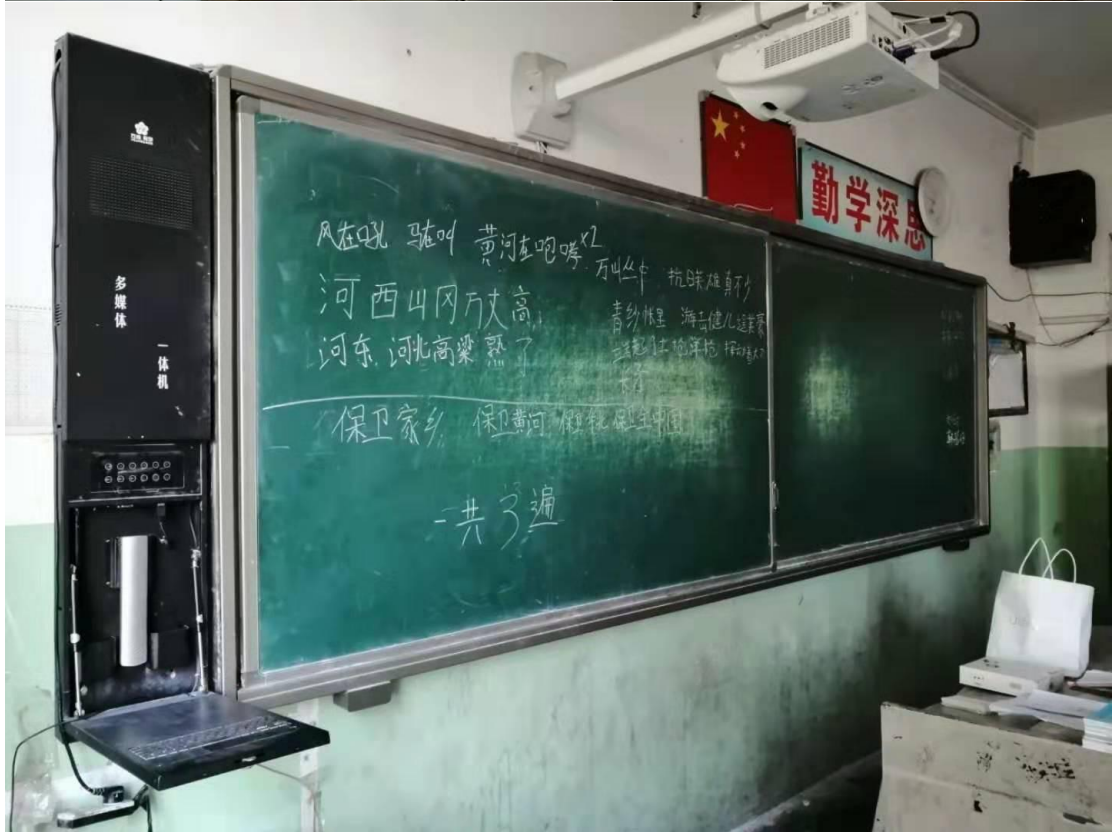 多媒体
一体机
勤学深思
风在吼 马在叫 黄河在咆哮×2
河西山冈万丈高
河东.河北高粱熟了
万山丛中 抗日英雄真不少
青纱帐里 游击健儿逞英豪
土枪洋枪
保卫家乡 保卫黄河 保卫华北 保卫全中国
一共3遍